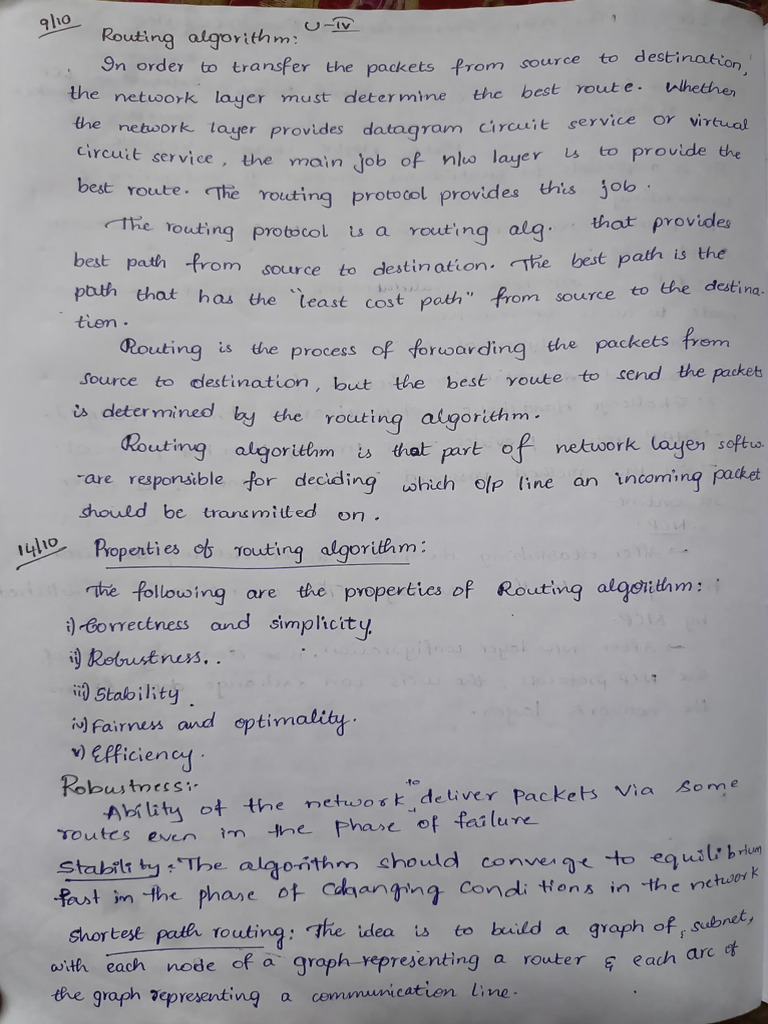 9/10
U-IV
Routing algorithm:
In order to transfer the packets from source to destination,
the network layer must determine the best route. Whether
the network layer provides datagram circuit service or virtual
circuit service, the main job of n/w layer is to provide the
best route. The routing protocol provides this job.
The routing protocol is a routing alg. that provides
best path from source to destination. The best path is the
path that has the "least cost path" from source to the destina-
tion.
Routing is the process of forwarding the packets from
source to destination, but the best route to send the packets
is determined by the routing algorithm.
Routing algorithm is that part of network layer softw-
-are responsible for deciding which o/p line an incoming packet
should be transmitted on.
14/10 Properties of routing algorithm:
The following are the properties of Routing algorithm:
i) Correctness and simplicity.
ii) Robustness..
iii) Stability.
iv) Fairness and optimality.
v) Efficiency.
Robustness:-
Ability of the network to deliver packets via some
routes even in the phase of failure
Stability: The algorithm should converge to equilibrium
fast in the phase of changing conditions in the network
Shortest path routing: The idea is to build a graph of subnet,
with each node of a graph representing a router & each arc of
the graph representing a communication line.